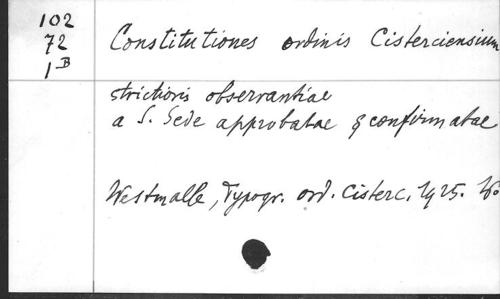 102
72
1B
Constitutiones ordinis Cisterciensium
strictioris observantiae
a S. Sede approbatae & confirmatae
Westmalle, Typogr. ord. Cisterc. 1925. 4o